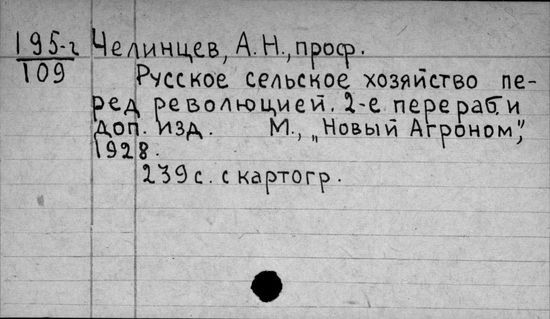 195-г Челинцев, А.Н., проф.
109 Русское сельское хозяйство пе-
ред революцией. 2-е перераб. и
доп. изд. М., „Новый Агроном",
1928.
239 с. с картогр.